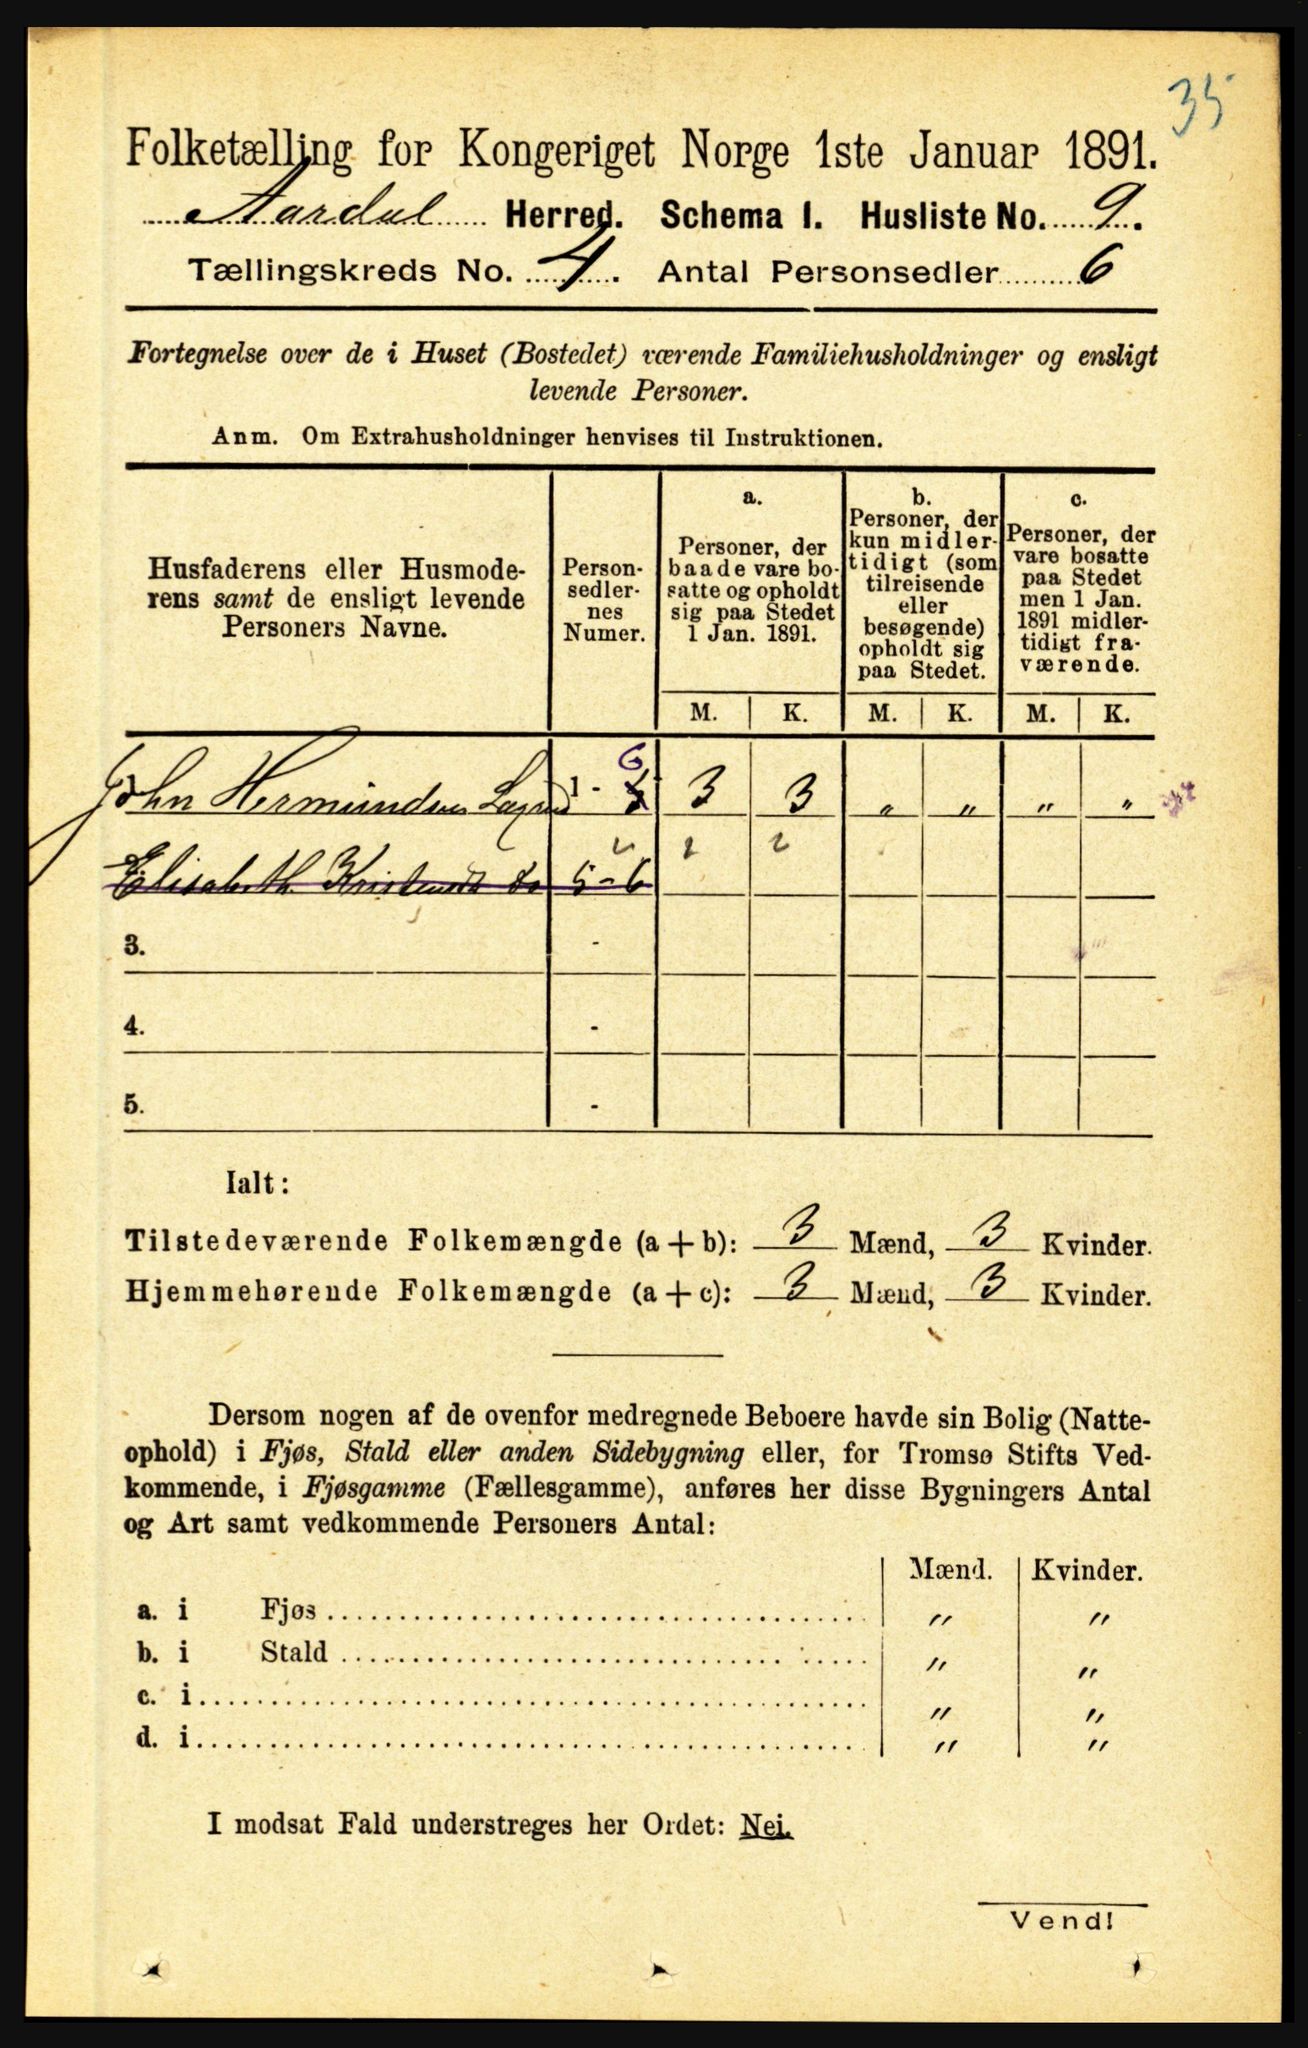 35
Folketælling for Kongeriget Norge 1ste Januar 1891.
Aardal Herred. Schema I. Husliste No. 9.
Tællingskreds No. 4. Antal Personsedler 6
Fortegnelse over de i Huset (Bostedet) værende Familiehusholdninger og ensligt
levende Personer.
Anm. Om Extrahusholdninger henvises til Instruktionen.
Husfaderens eller Husmode-
rens samt de ensligt levende
Personers Navne.
Person-
sedler-
nes
Numer.
a.
Personer, der
baade vare bo-
satte og opholdt
sig paa Stedet
1 Jan. 1891.
b.
Personer, der
kun midler-
tidigt (som
tilreisende
eller
besøgende)
opholdt sig
paa Stedet.
c.
Personer, der
vare bosatte
paa Stedet
men 1 Jan.
1891 midler-
tidigt fra-
værende.
M. K. M. K. M. K.
John Hermundsen 1 - 6 3 3 " " " "
Elisabeth 5 - 6 2 2
3. -
4. -
5. -
Ialt:
Tilstedeværende Folkemængde (a + b): 3 Mænd, 3 Kvinder.
Hjemmehørende Folkemængde (a + c): 3 Mænd, 3 Kvinder.
Dersom nogen af de ovenfor medregnede Beboere havde sin Bolig (Natte-
ophold) i Fjøs, Stald eller anden Sidebygning eller, for Tromsø Stifts Ved-
kommende, i Fjøsgamme (Fællesgamme), anføres her disse Bygningers Antal
og Art samt vedkommende Personers Antal:
Mænd. Kvinder.
a. i Fjøs " "
b. i Stald " "
c. i " "
d. i " "
I modsat Fald understreges her Ordet: Nei.
Vend!